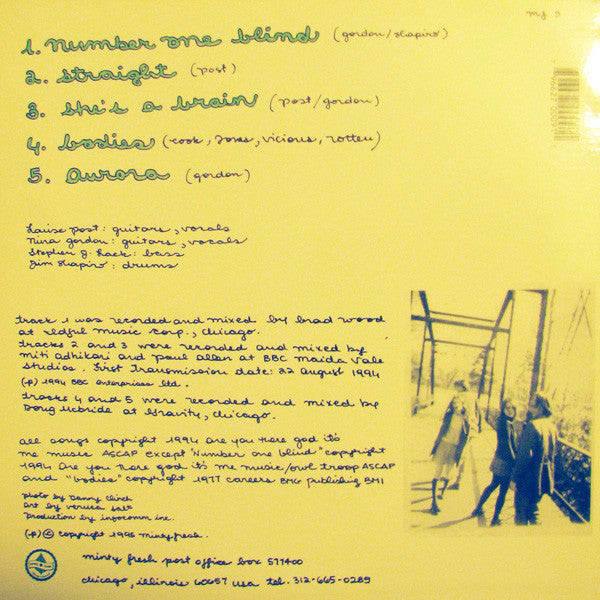 mf 9
1. number one blind (gordon/shapiro)
2. straight (post)
3. she's a brain (post/gordon)
4. bodies (cook, jones, vicious, rotten)
5. aurora (gordon)
Louise post: guitars, vocals
Nina gordon: guitars, vocals
Stephen g. Lack: bass
Jim Shapiro: drums
track 1 was recorded and mixed by brad wood
at idful music corp., chicago.
tracks 2 and 3 were recorded and mixed by
miti adhikari and paul allen at BBC maida vale
studios. First Transmission date: 22 august 1994
(p) 1994 BBC enterprises ltd.
tracks 4 and 5 were recorded and mixed by
Doug mcbride at gravity, chicago.
all songs copyright 1994 are you there god it's
me music ASCAP except "number one blind" copyright
1994 are you there god it's me music/owl troop ASCAP
and "bodies" copyright 1977 careers BMG publishing BMI
photo by Danny Clinch
art by veruca salt
production by infocomm inc.
(p)© copyright 1995 minty fresh.
minty fresh post office box 577400
chicago, illinois 60657 usa tel. 312-665-0289